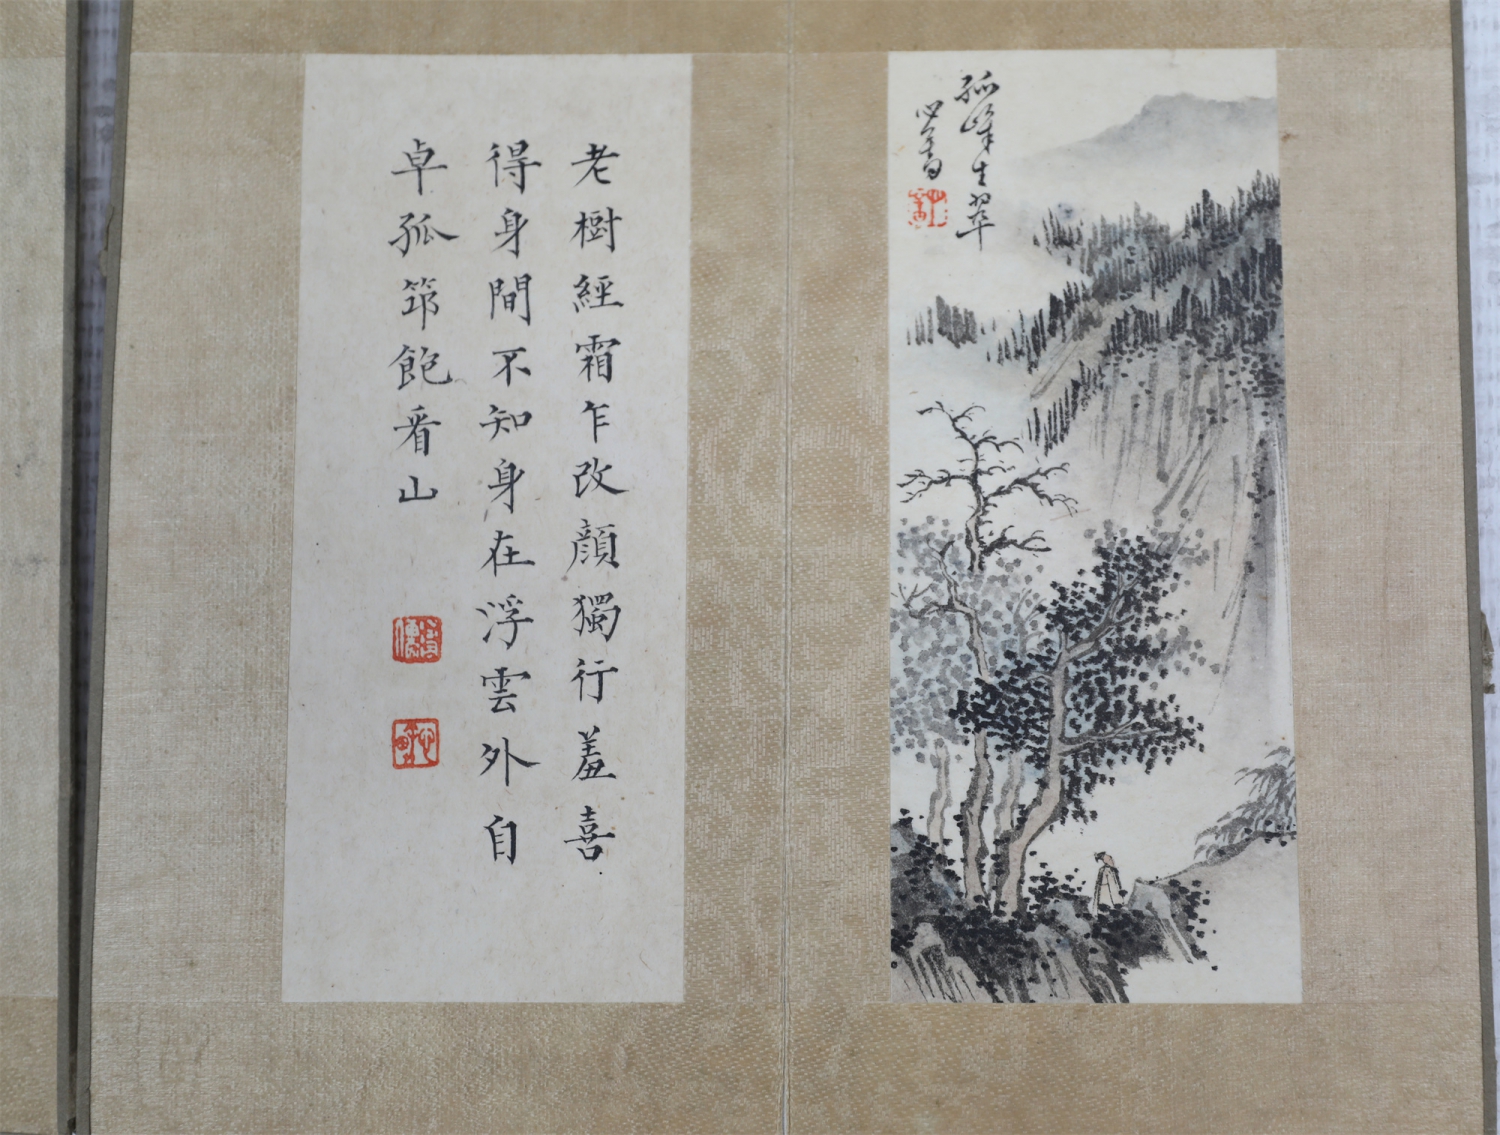 孤峰生翠
心畬
老樹經霜乍改顏獨行羞喜
得身間不知身在浮雲外自
卓孤筇飽看山